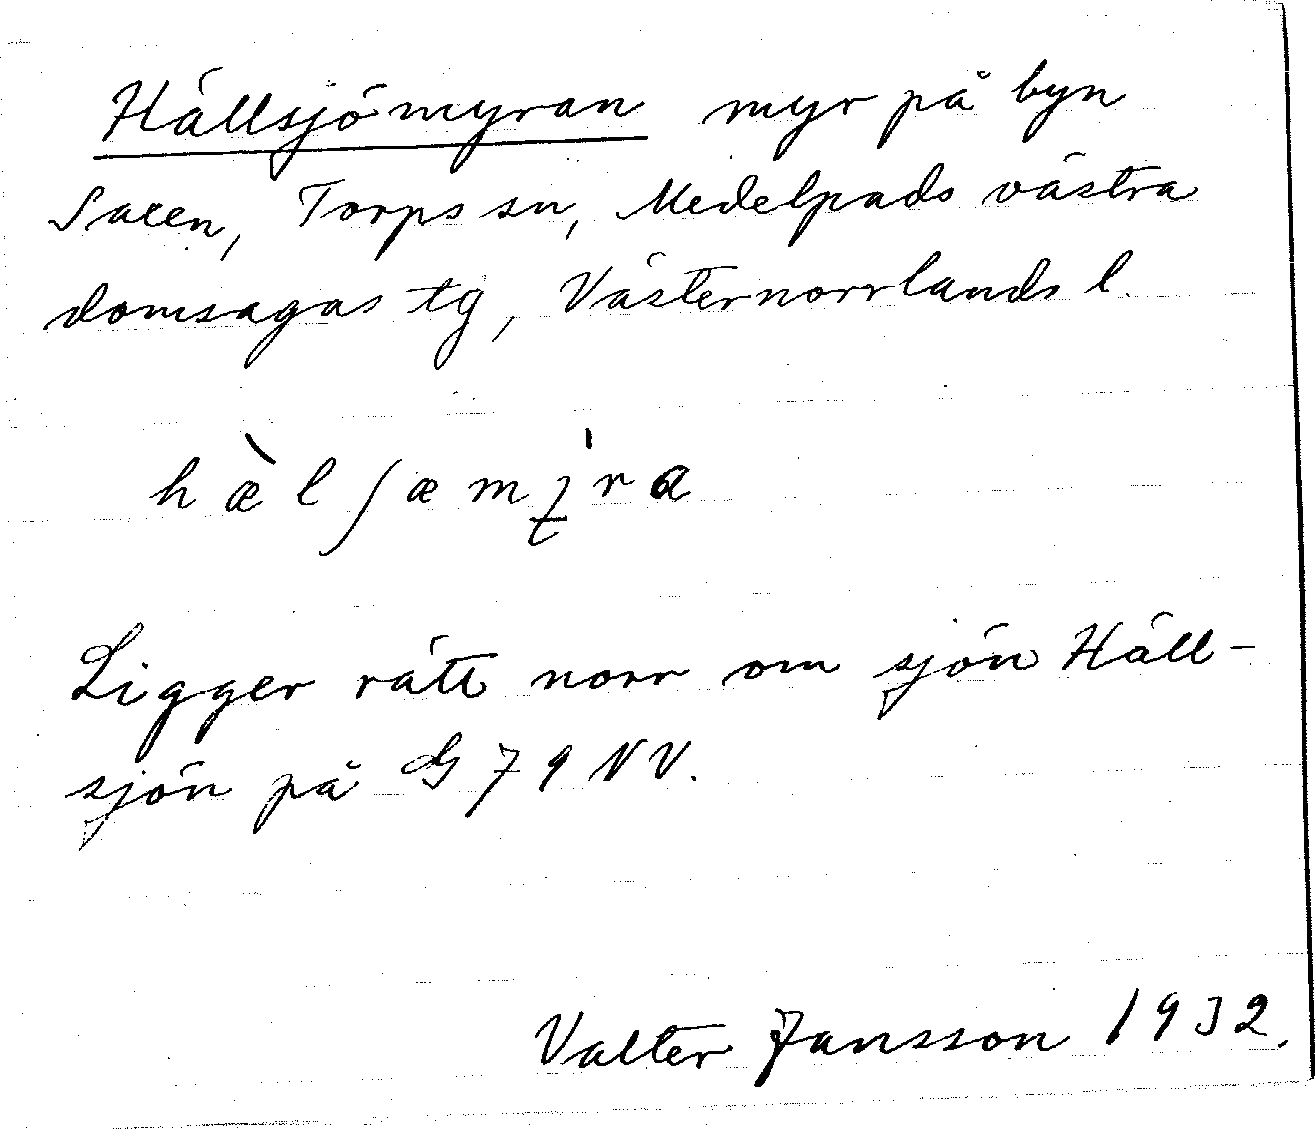 Hällsjömyran myr på byn
Saxen, Torps sn, Medelpads västra
domsagas tg, Västernorrlands l.
hæ̀lʃæmy̠̍ra
Ligger rätt norr om sjön Häll-
sjön på G 79 NV.
Valter Jansson 1932.